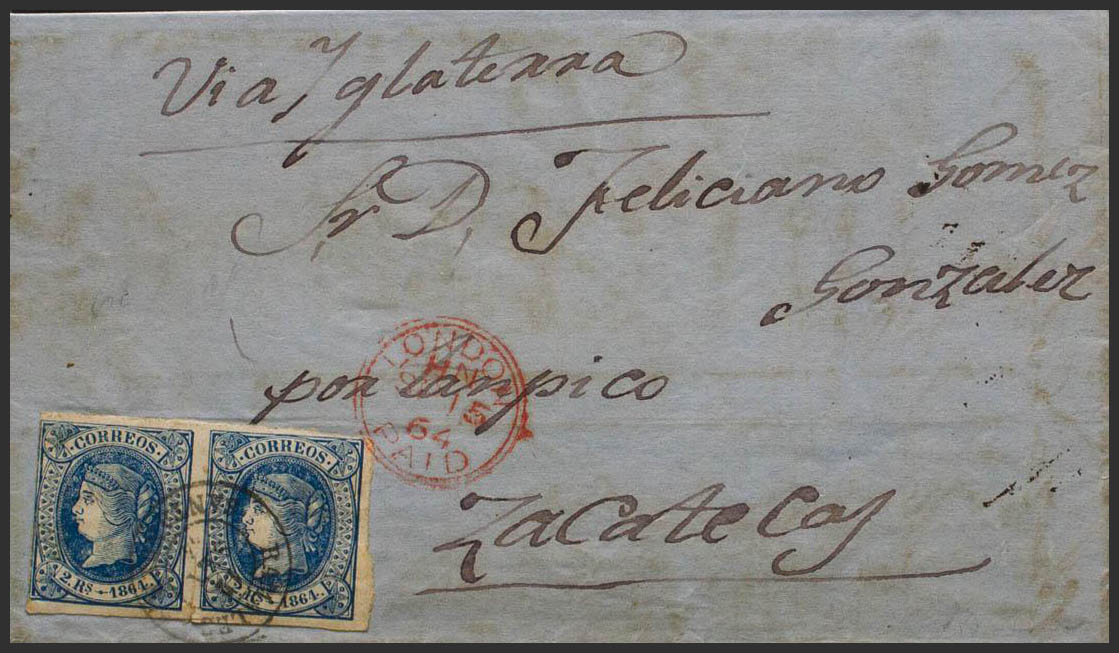 Via Yglaterra
Sr D, Feliciano Gomez
Gonzalez
por tanpico
Zacatecas
LONDON
15
64
PAID
CORREOS
2. Rs. 1864.
CORREOS
1864.